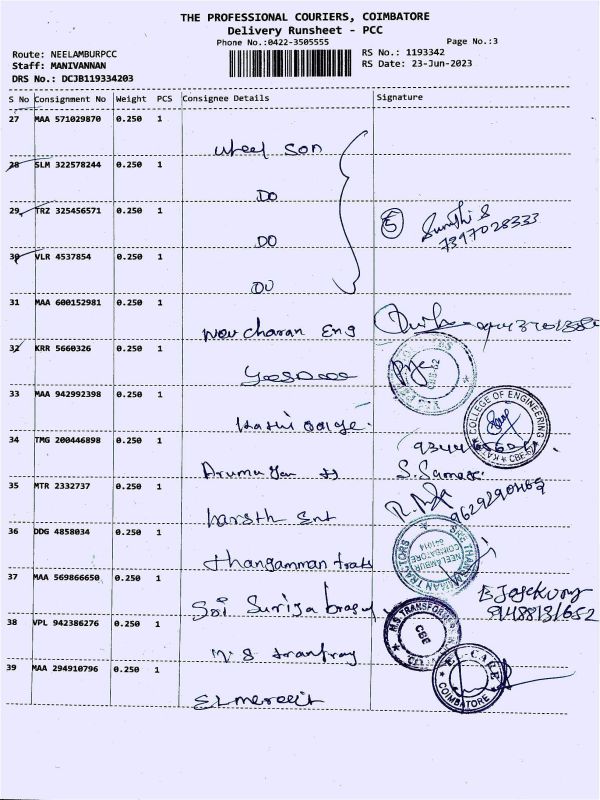 THE PROFESSIONAL COURIERS, COIMBATORE
Delivery Runsheet - PCC
Phone No.:0422-3505555
Page No.:3
Route: NEELAMBURPCC
RS No.: 1193342
Staff: MANIVANNAN
RS Date: 23-Jun-2023
DRS No.: DCJB119334203
S No Consignment No Weight PCS Consignee Details Signature
27 MAA 571029870 0.250 1
wheel son
28 SLM 322578244 0.250 1
DO
29 TRZ 325456571 0.250 1
DO
5
7397028333
30 VLR 4537854 0.250 1
DO
31 MAA 600152981 0.250 1
charan Eng
32 KRR 5660326 0.250 1
33 MAA 942992398 0.250 1
COLLEGE OF ENGINEERING
34 TMG 200446898 0.250 1
35 MTR 2332737 0.250 1
Harsth Ent
36 DDG 4858034 0.250 1
Thangamman
NEELAMBUR
COIMBATORE
641014
37 MAA 569866650 0.250 1
Sri Suriya
38 VPL 942386276 0.250 1
M.S
M.S. TRANSFORM
CBE
39 MAA 294910796 0.250 1
COIMBATORE